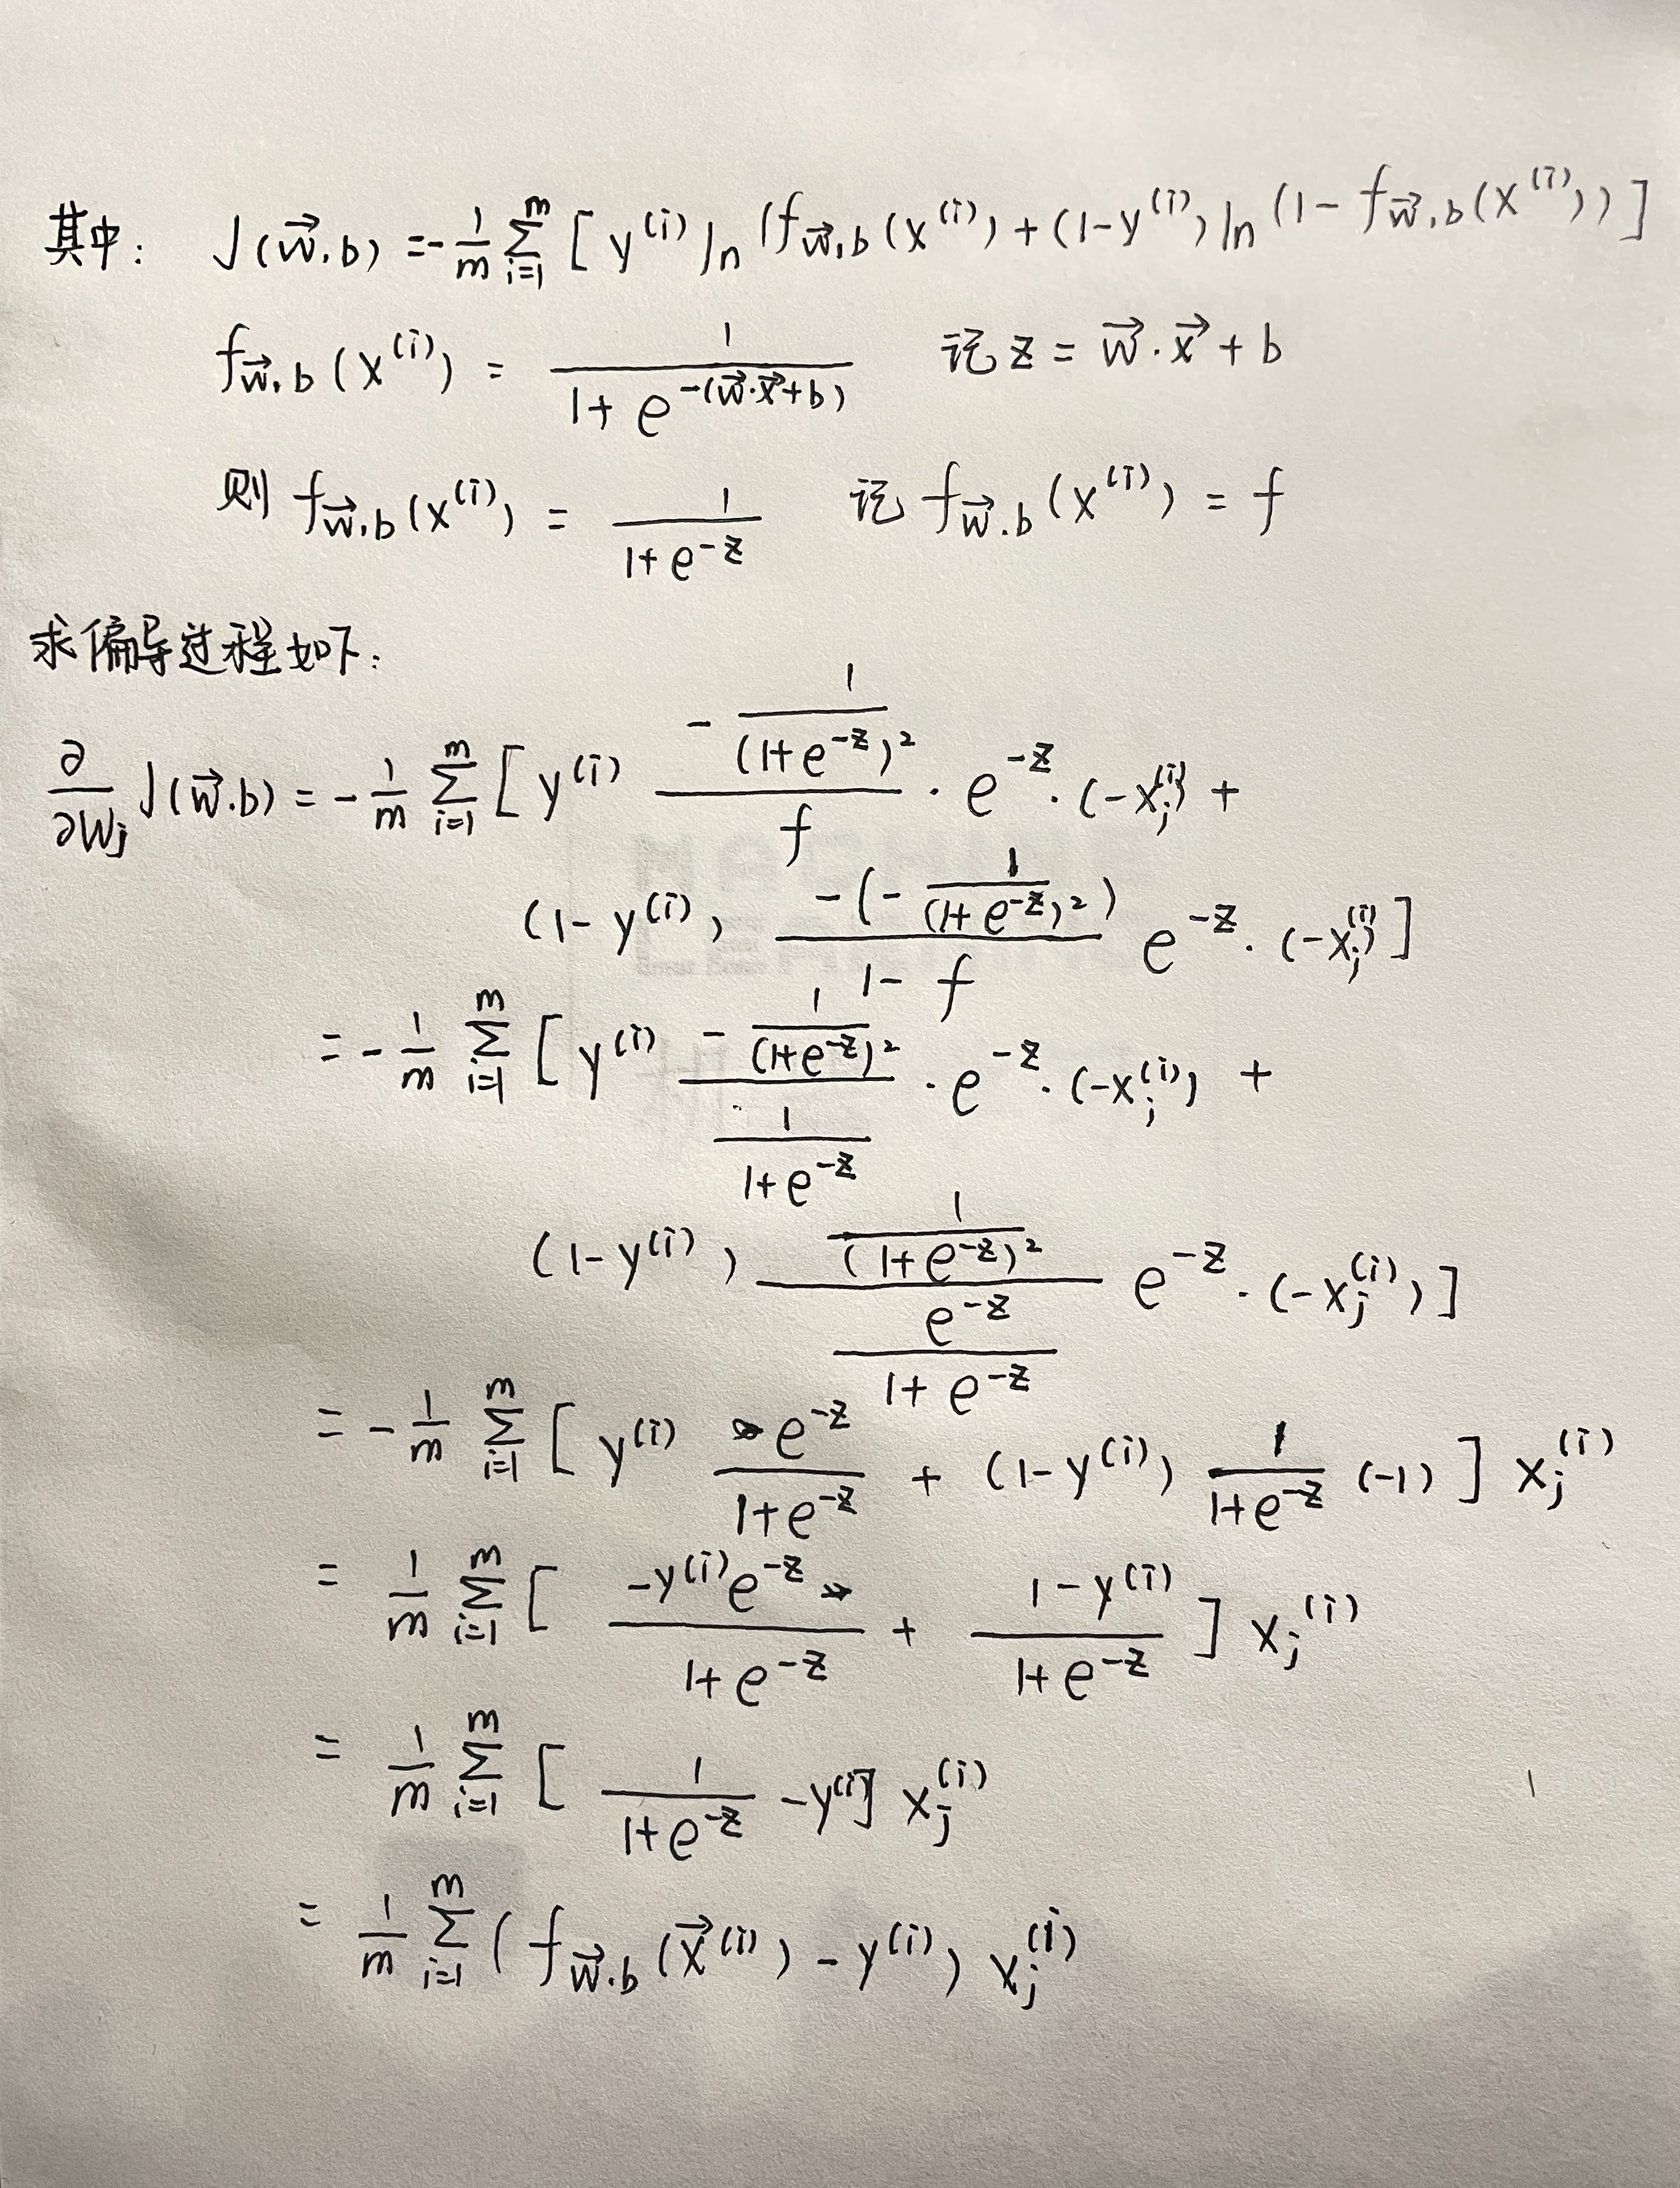 其中： J(w⃗,b) = -1/m Σ_{i=1}^{m} [ y^{(i)} ln (f_{w⃗,b}(x^{(i)}) + (1-y^{(i)}) ln (1- f_{w⃗,b}(x^{(i)})) ]
f_{w⃗,b}(x^{(i)}) = 1/(1+e^{-(w⃗·x⃗+b)}) 记 z = w⃗·x⃗ + b
则 f_{w⃗,b}(x^{(i)}) = 1/(1+e^{-z}) 记 f_{w⃗,b}(x^{(i)}) = f
求偏导过程如下：
∂/∂w_j J(w⃗,b) = -1/m Σ_{i=1}^{m} [ y^{(i)} (-1/(1+e^{-z})^2)/f · e^{-z} · (-x_j^{(i)}) +
(1-y^{(i)}) (-(-1/(1+e^{-z})^2))/(1-f) e^{-z} · (-x_j^{(i)}) ]
= -1/m Σ_{i=1}^{m} [ y^{(i)} (-1/(1+e^{-z})^2)/(1/(1+e^{-z})) · e^{-z} · (-x_j^{(i)}) +
(1-y^{(i)}) (1/(1+e^{-z})^2)/(e^{-z}/(1+e^{-z})) e^{-z} · (-x_j^{(i)}) ]
= -1/m Σ_{i=1}^{m} [ y^{(i)} e^{-z}/(1+e^{-z}) + (1-y^{(i)}) 1/(1+e^{-z}) (-1) ] x_j^{(i)}
= 1/m Σ_{i=1}^{m} [ -y^{(i)}e^{-z}/(1+e^{-z}) + (1-y^{(i)})/(1+e^{-z}) ] x_j^{(i)}
= 1/m Σ_{i=1}^{m} [ 1/(1+e^{-z}) - y^{(i)} ] x_j^{(i)}
= 1/m Σ_{i=1}^{m} ( f_{w⃗,b}(x⃗^{(i)}) - y^{(i)} ) x_j^{(i)}